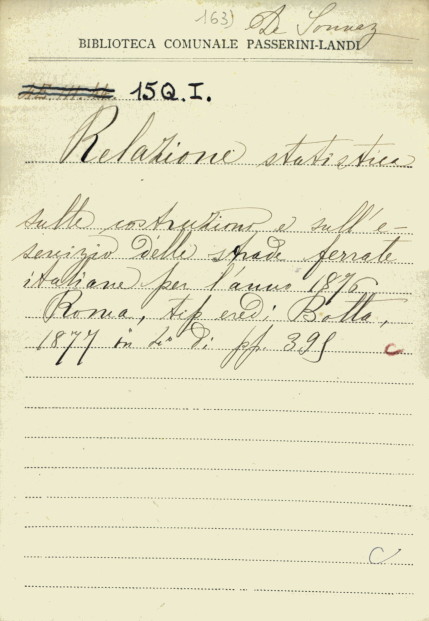 163) De
BIBLIOTECA COMUNALE PASSERINI-LANDI
15Q.I.
Relazione statistica
sulle costruzioni e sull'e-
sercizio delle strade ferrate
italiane per l'anno 1876
Roma, tip eredi Botta,
1877 in 4º di pp. 395
C
C